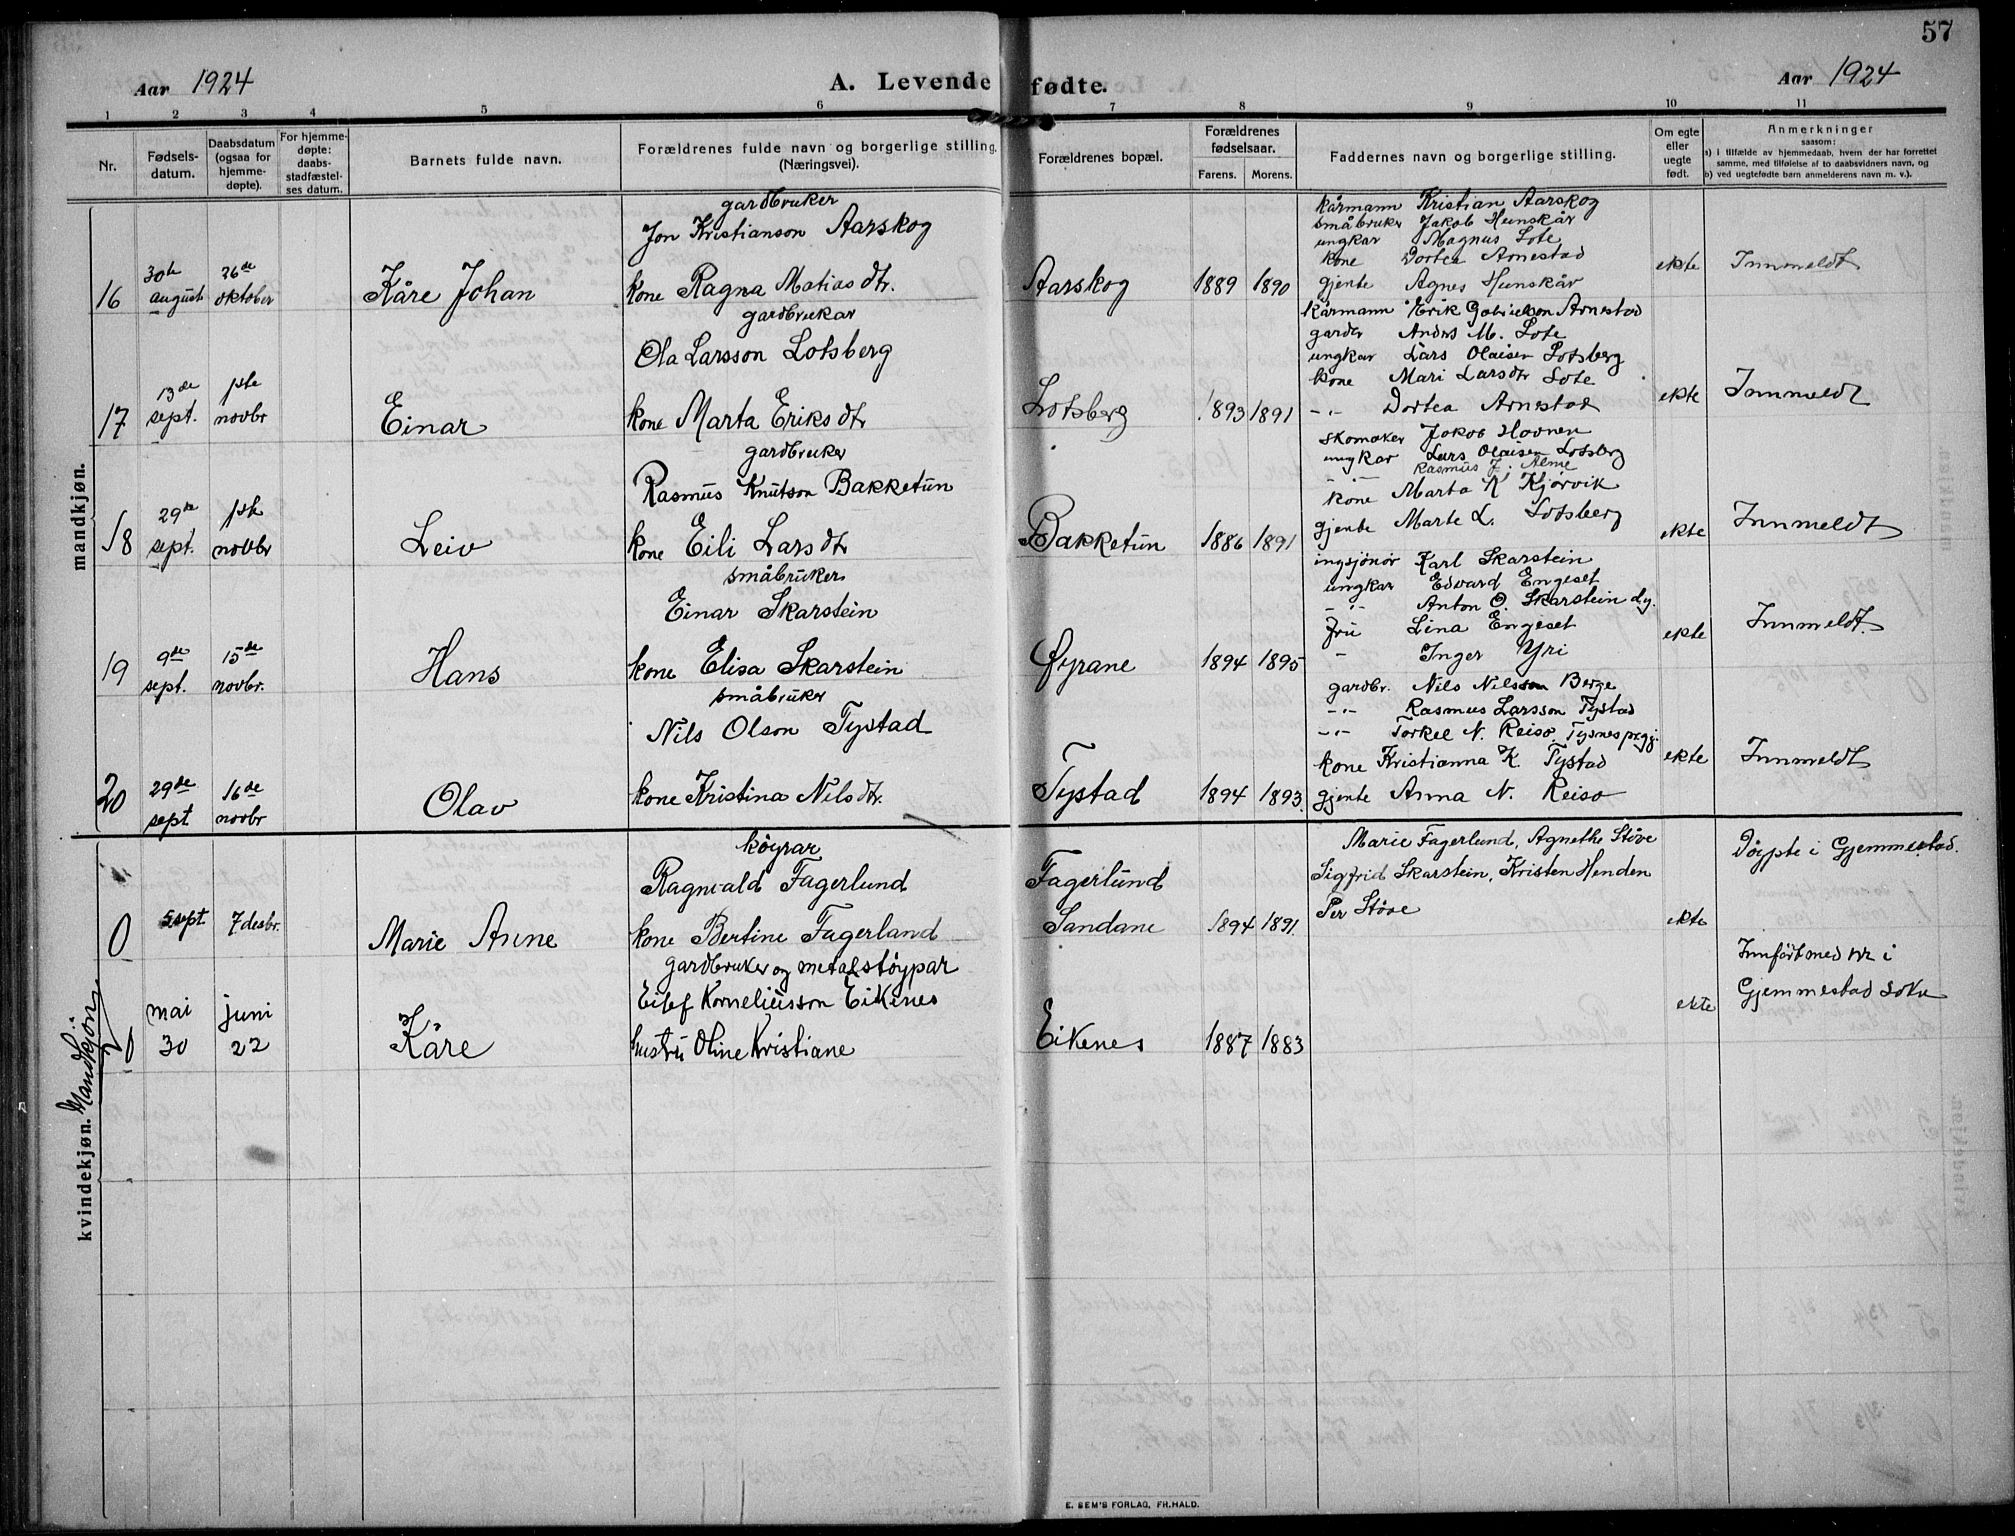 57
Aar 1924
A. Levende fødte.
Aar 1924
1 2 3 4 5 6 7 8 9 10 11
Nr.
Fødsels-
datum.
Daabsdatum
(ogsaa for
hjemme-
døpte).
For hjemme-
døpte:
daabs-
stadfæstel-
ses datum.
Barnets fulde navn.
Forældrenes fulde navn og borgerlige stilling.
(Næringsvei).
Forældrenes bopæl.
Forældrenes
fødselsaar.
Farens. Morens.
Faddernes navn og borgerlige stilling.
Om egte
eller
uegte
født.
Anmerkninger
saasom:
a) i tilfælde av hjemmedaab, hvem der har forrettet
samme, med tilføielse af to daabsvidners navn, og
b) ved uegtefødte børn anmelderens navn m. v.).
mandkjøn.
16
30te
august
26de
oktober
Kåre Johan
gardbruker
Jon Kristianson Aarskog
kone Ragna Matiasdtr.
Aarskog
1889 1890
kårmann Kristian Aarskog
småbruker Jakob Hunskår
ungkar Magnus Lote
kone Dortea Arnestad
gjente Agnes Hunskår
ekte
Innmeldt
17
13de
sept.
1ste
novbr
Einar
gardbrukar
Ola Larsson Lotsberg
kone Marta Eriksdtr
Lotsberg
1893 1891
kårmann Erik Gabrielson Arnestad
gardbr Andrs M. Lote
ungkar Lars Olaisen Lotsberg
kone Mari Larsdtr Lote
-"- Dortea Arnestad
ekte
Innmeldt
18
29de
sept.
1ste
novbr
Leiv
gardbruker
Rasmus Knutson Bakketun
kone Eili Larsdtr
Bakketun
1886 1891
skomaker Jakob Hovnen
ungkar Lars Olaisen Lotsberg
-"- Rasmus J. Alme
kone Marta K Kjørvik
gjente Marte L. Lotsberg
ekte
Innmeldt
19
9de
sept.
15de
novbr.
Hans
småbruker
Einar Skarstein
kone Elisa Skarstein
Øyrane
1894 1895
ingsjønør Karl Skarstein
ungkar Edvard Engeset
-"- Anton O. Skarstein d.y.
fru Lina Engeset
" Inger Yri
ekte
Innmeldt.
20
29de
sept
16de
novbr
Olav
småbruker
Nils Olson Tystad
kone Kristina Nilsdtr.
Tystad
1894 1893.
gardbr. Nils Nilsson Berge
-"- Rasmus Larsson Tystad
-"- Torkel N. Reisø. Tysnes prgj.
kone Kristianna K. Tystad
gjente Anna N. Reisø
ekte
Innmeldt
kvindekjøn.
0
5 sept. 7 desbr.
Marie Anne
køyrar
Ragnvald Fagerlund
kone Bertine Fagerland
Fagerlund
Sandane
1894 1891.
Marie Fagerlund, Agnethe Støve
Sigfrid Skarstein, Kristen Henden
Per Støve
ekte
Døypte i Gjemmestad.
Mandkjøn
0
mai
30
juni
22
Kåre
gardbruker og metalstøypar
Eilef Korneliusson Eikenes
hustru Oline Kristiane
Eikenes
1887 1883
ekte
Innført med nr i
Gjemmestad sokn
E. SEM'S FORLAG, FR.HALD.